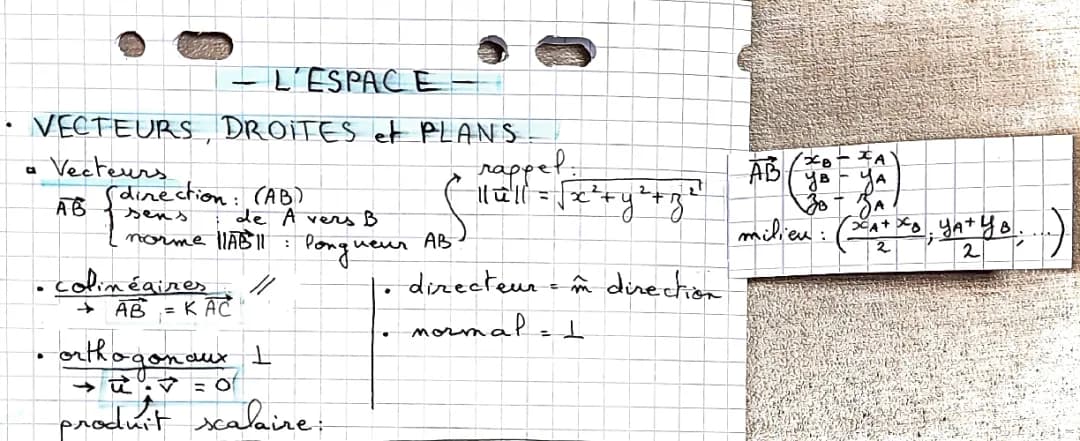 — L'ESPACE —
• VECTEURS, DROITES et PLANS.
▫ Vecteurs
$\overrightarrow{AB}$ { direction : (AB)
sens : de A vers B
norme ||$\overrightarrow{AB}$|| : longueur AB
rappel :
||$\vec{u}$|| = $\sqrt{x^2 + y^2 + z^2}$
$\overrightarrow{AB}$ $\begin{pmatrix} x_B - x_A \\ y_B - y_A \\ z_B - z_A \end{pmatrix}$
milieu : $\left(\frac{x_A + x_B}{2} ; \frac{y_A + y_B}{2} ; \ldots\right)$
• colinéaires //
→ $\overrightarrow{AB}$ = K $\overrightarrow{AC}$
• orthogonaux ⊥
→ $\vec{u} \cdot \vec{v}$ = 0
produit scalaire :
• directeur = m̂ direction
• normal = ⊥